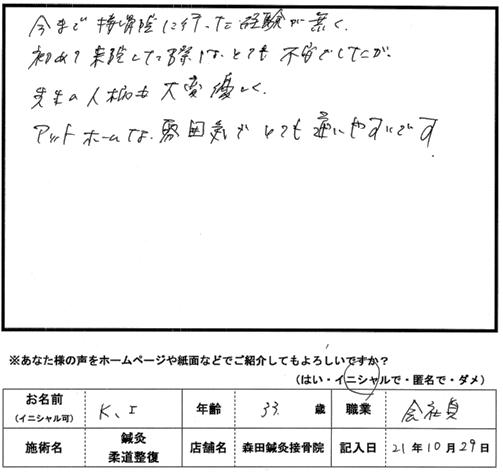 今まで接骨院に行った経験が無く、
初めて来院した際は、とても不安でしたが、
先生の人柄も大変優しく、
アットホームな雰囲気でとても通いやすいです。
※あなた様の声をホームページや紙面などでご紹介してもよろしいですか?
(はい・イニシャルで・匿名で・ダメ)
お名前 (イニシャル可) K、I 年齢 33 歳 職業 会社員
施術名 鍼灸 柔道整復 店舗名 森田鍼灸接骨院 記入日 21年10月29日